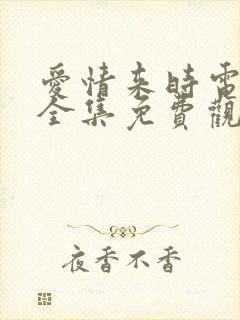 愛情來時電
全集免費觀
夜香不香